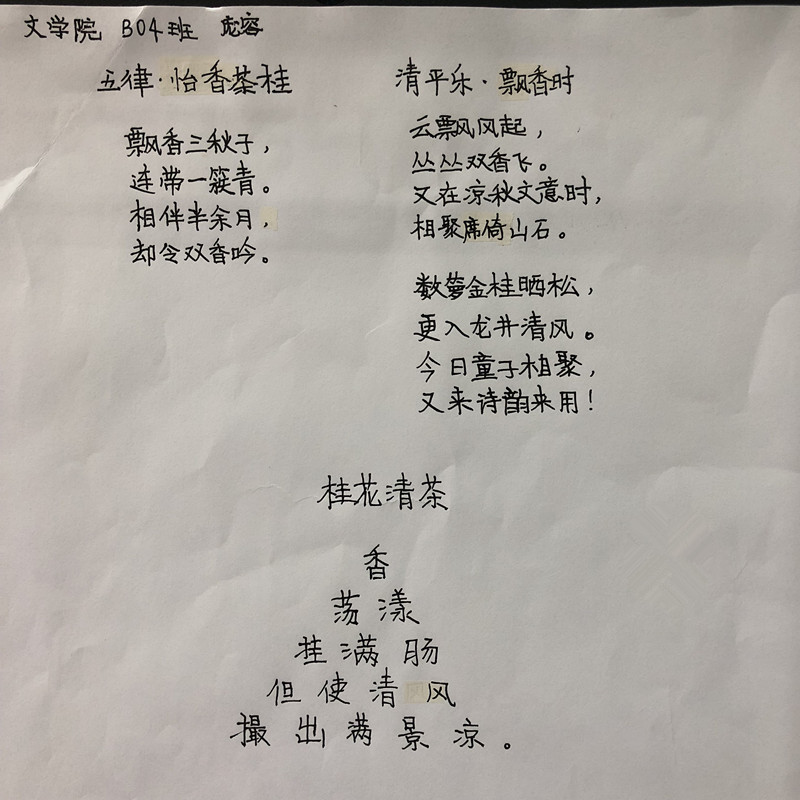 文学院 B04班
五律·怡香茶桂
飘香三秋子，
连带一簇青。
相伴半余月，
却令双香吟。
清平乐·飘香时
云飘风风起，
丛丛双香飞。
又在凉秋文意时，
相聚席倚山石。
数萝金桂晒松，
更入龙井清风。
今日童子相聚，
又来诗韵来用！
桂花清茶
香
荡漾
挂满肠
但使清风
撮出满景凉。